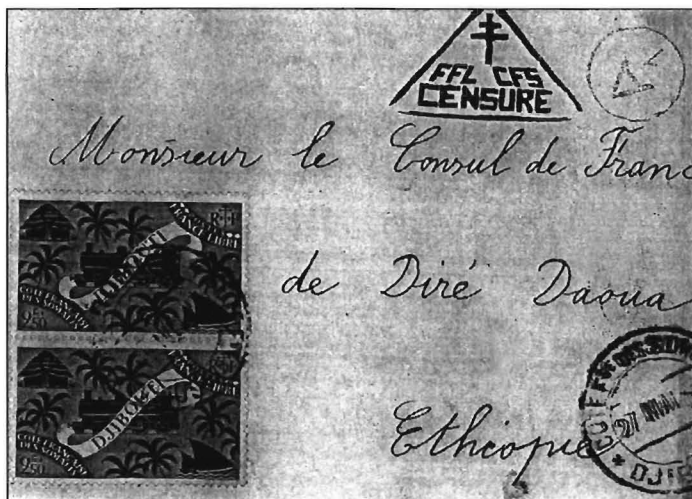 FFL CFS
CENSURE
Monsieur le Consul de Franc
de Diré Daoua
Ethiopie
RF
FRANCE LIBRE
DJIBOUTI
COTE FRANÇAISE
DES SOMALIS
9F50
FRANCE LIBRE
DJIBOUTI
COTE FRANÇAISE
DES SOMALIS
9F50
27 MAI